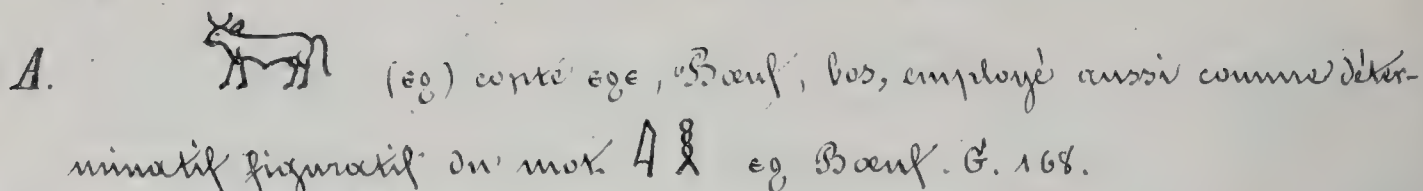 A. 𓃒 (ⲉϩ) copté ⲉϩⲉ, Bœuf, bos, employé aussi comme déter-
minatif figuratif du mot 𓇋𓎛 ⲉϩ Bœuf. G. 168.